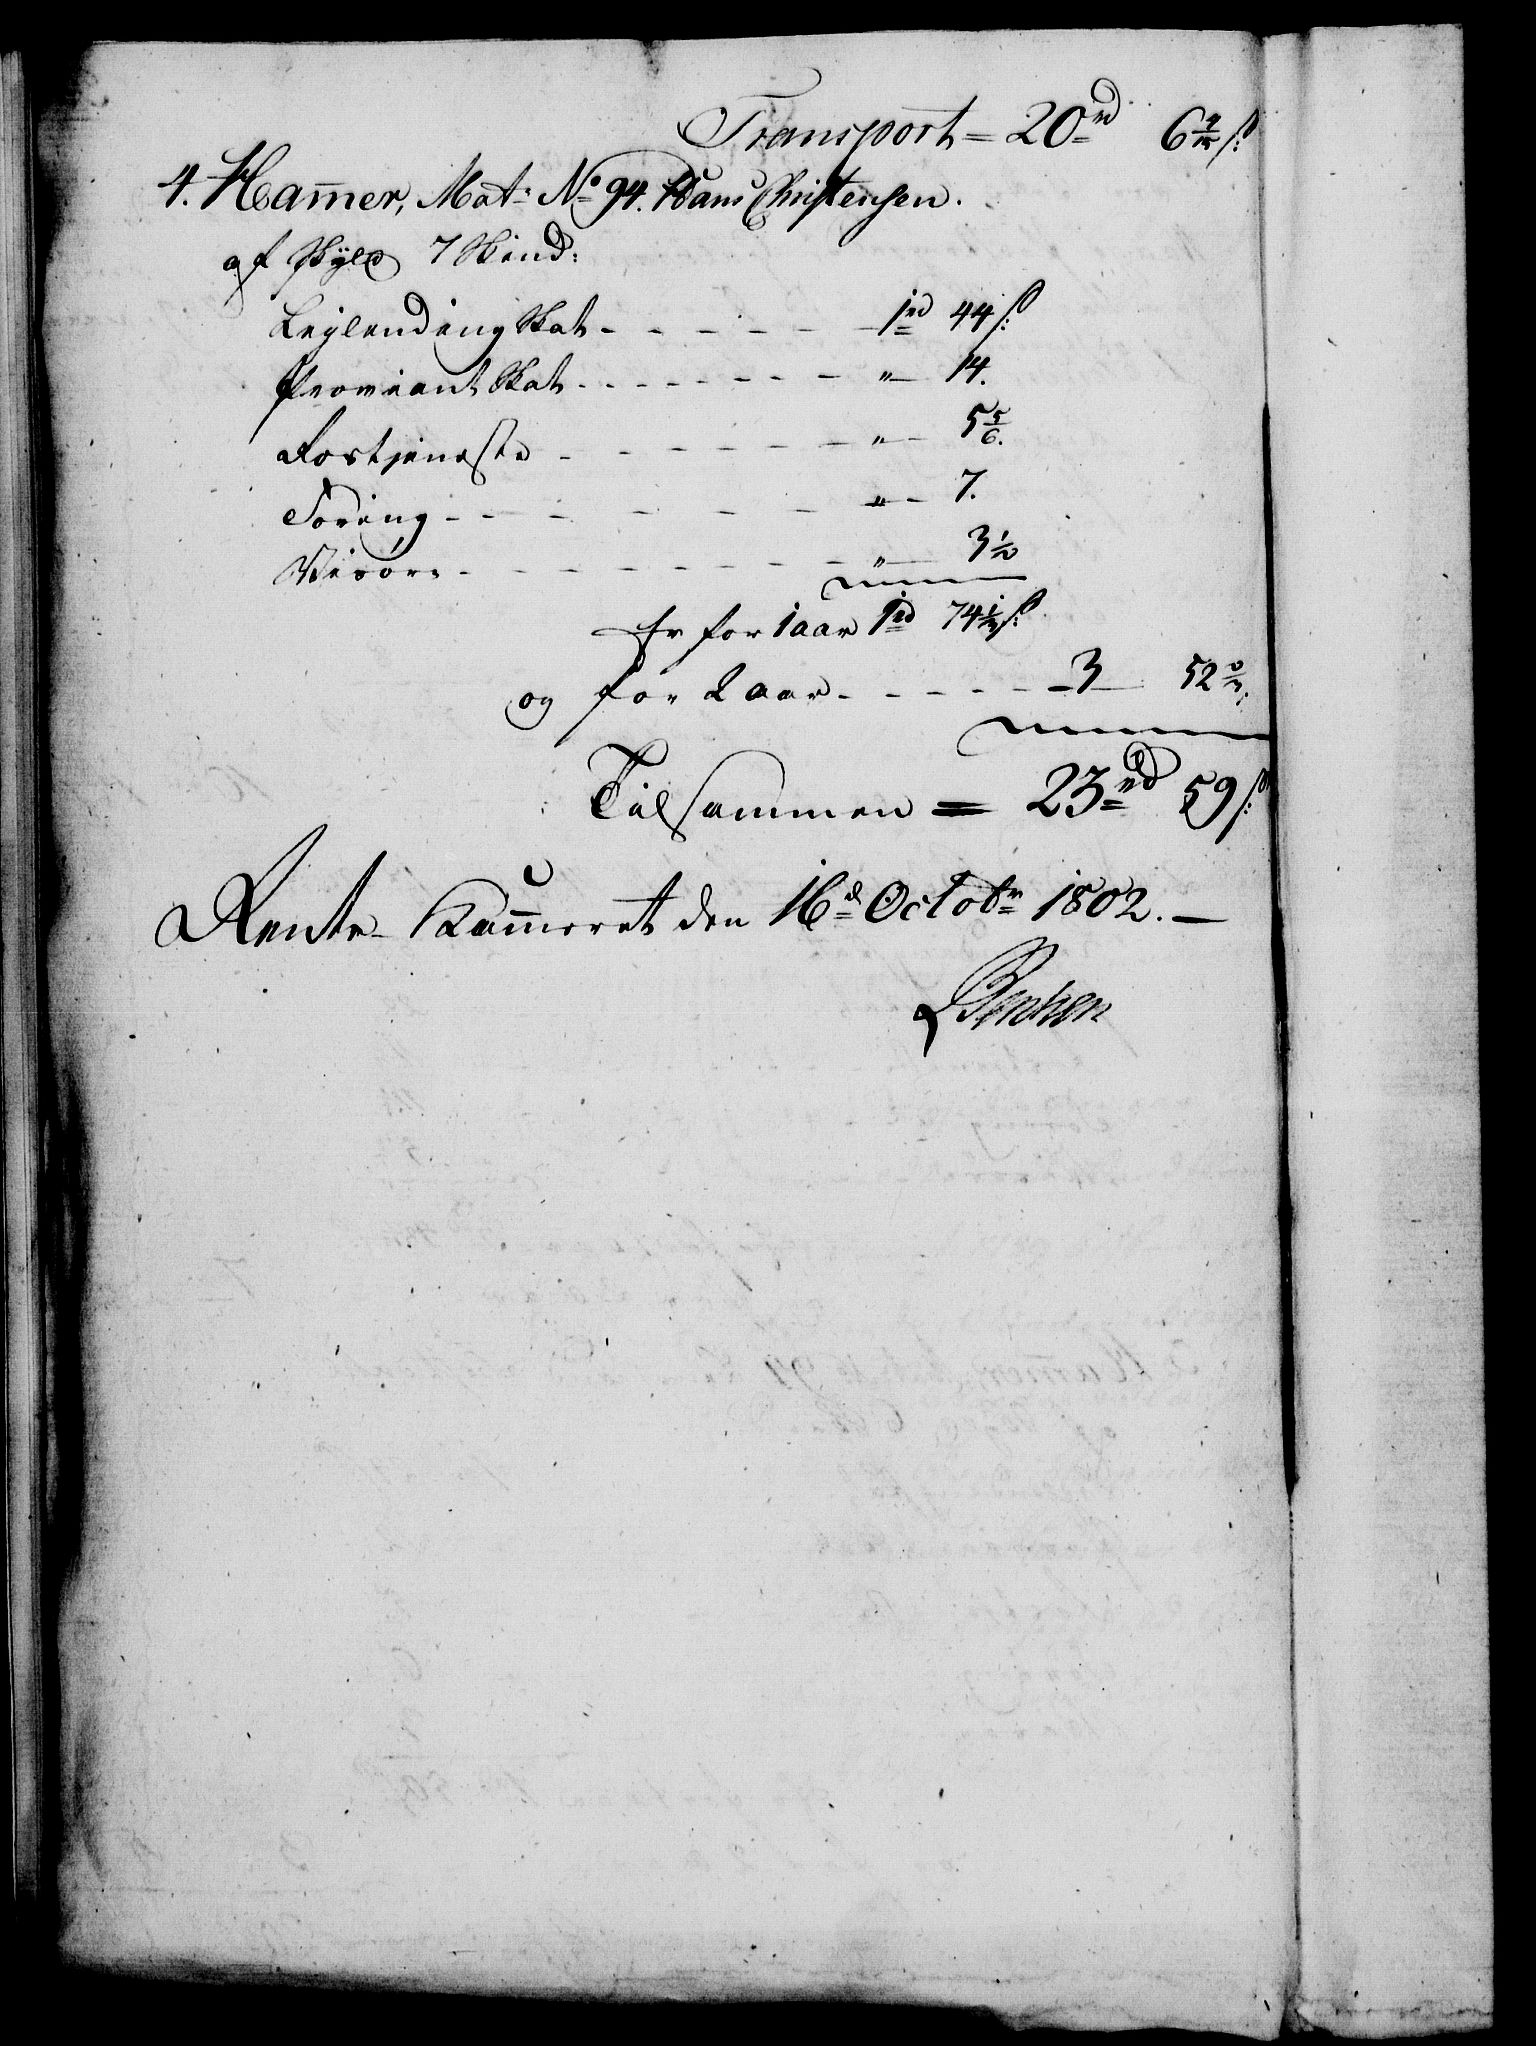 Transport = 20 rd 6 1/3 ſ:
4. Ham̄er, Mat: No 94. Hans Christensen.
af Skyld 7 Skind:
Leylending Skat - - - - - 1 rd 44 ſ:
Proviant Skat - - - - - - - " - 14.
Rostjeneste - - - - - - - " - 5 5/6.
Foring - - - - - - - " - 7.
Wisøre - - - - - - - - " - 3 1/2
Er for 1 aar 1 rd 74 1/3 ſ:
og for 2 aar - - - - - 3 - 52 2/3:
Tilsammen = 23 rd 59 ſ:
Rente-Kam̄eret den 16d Octobr 1802. —